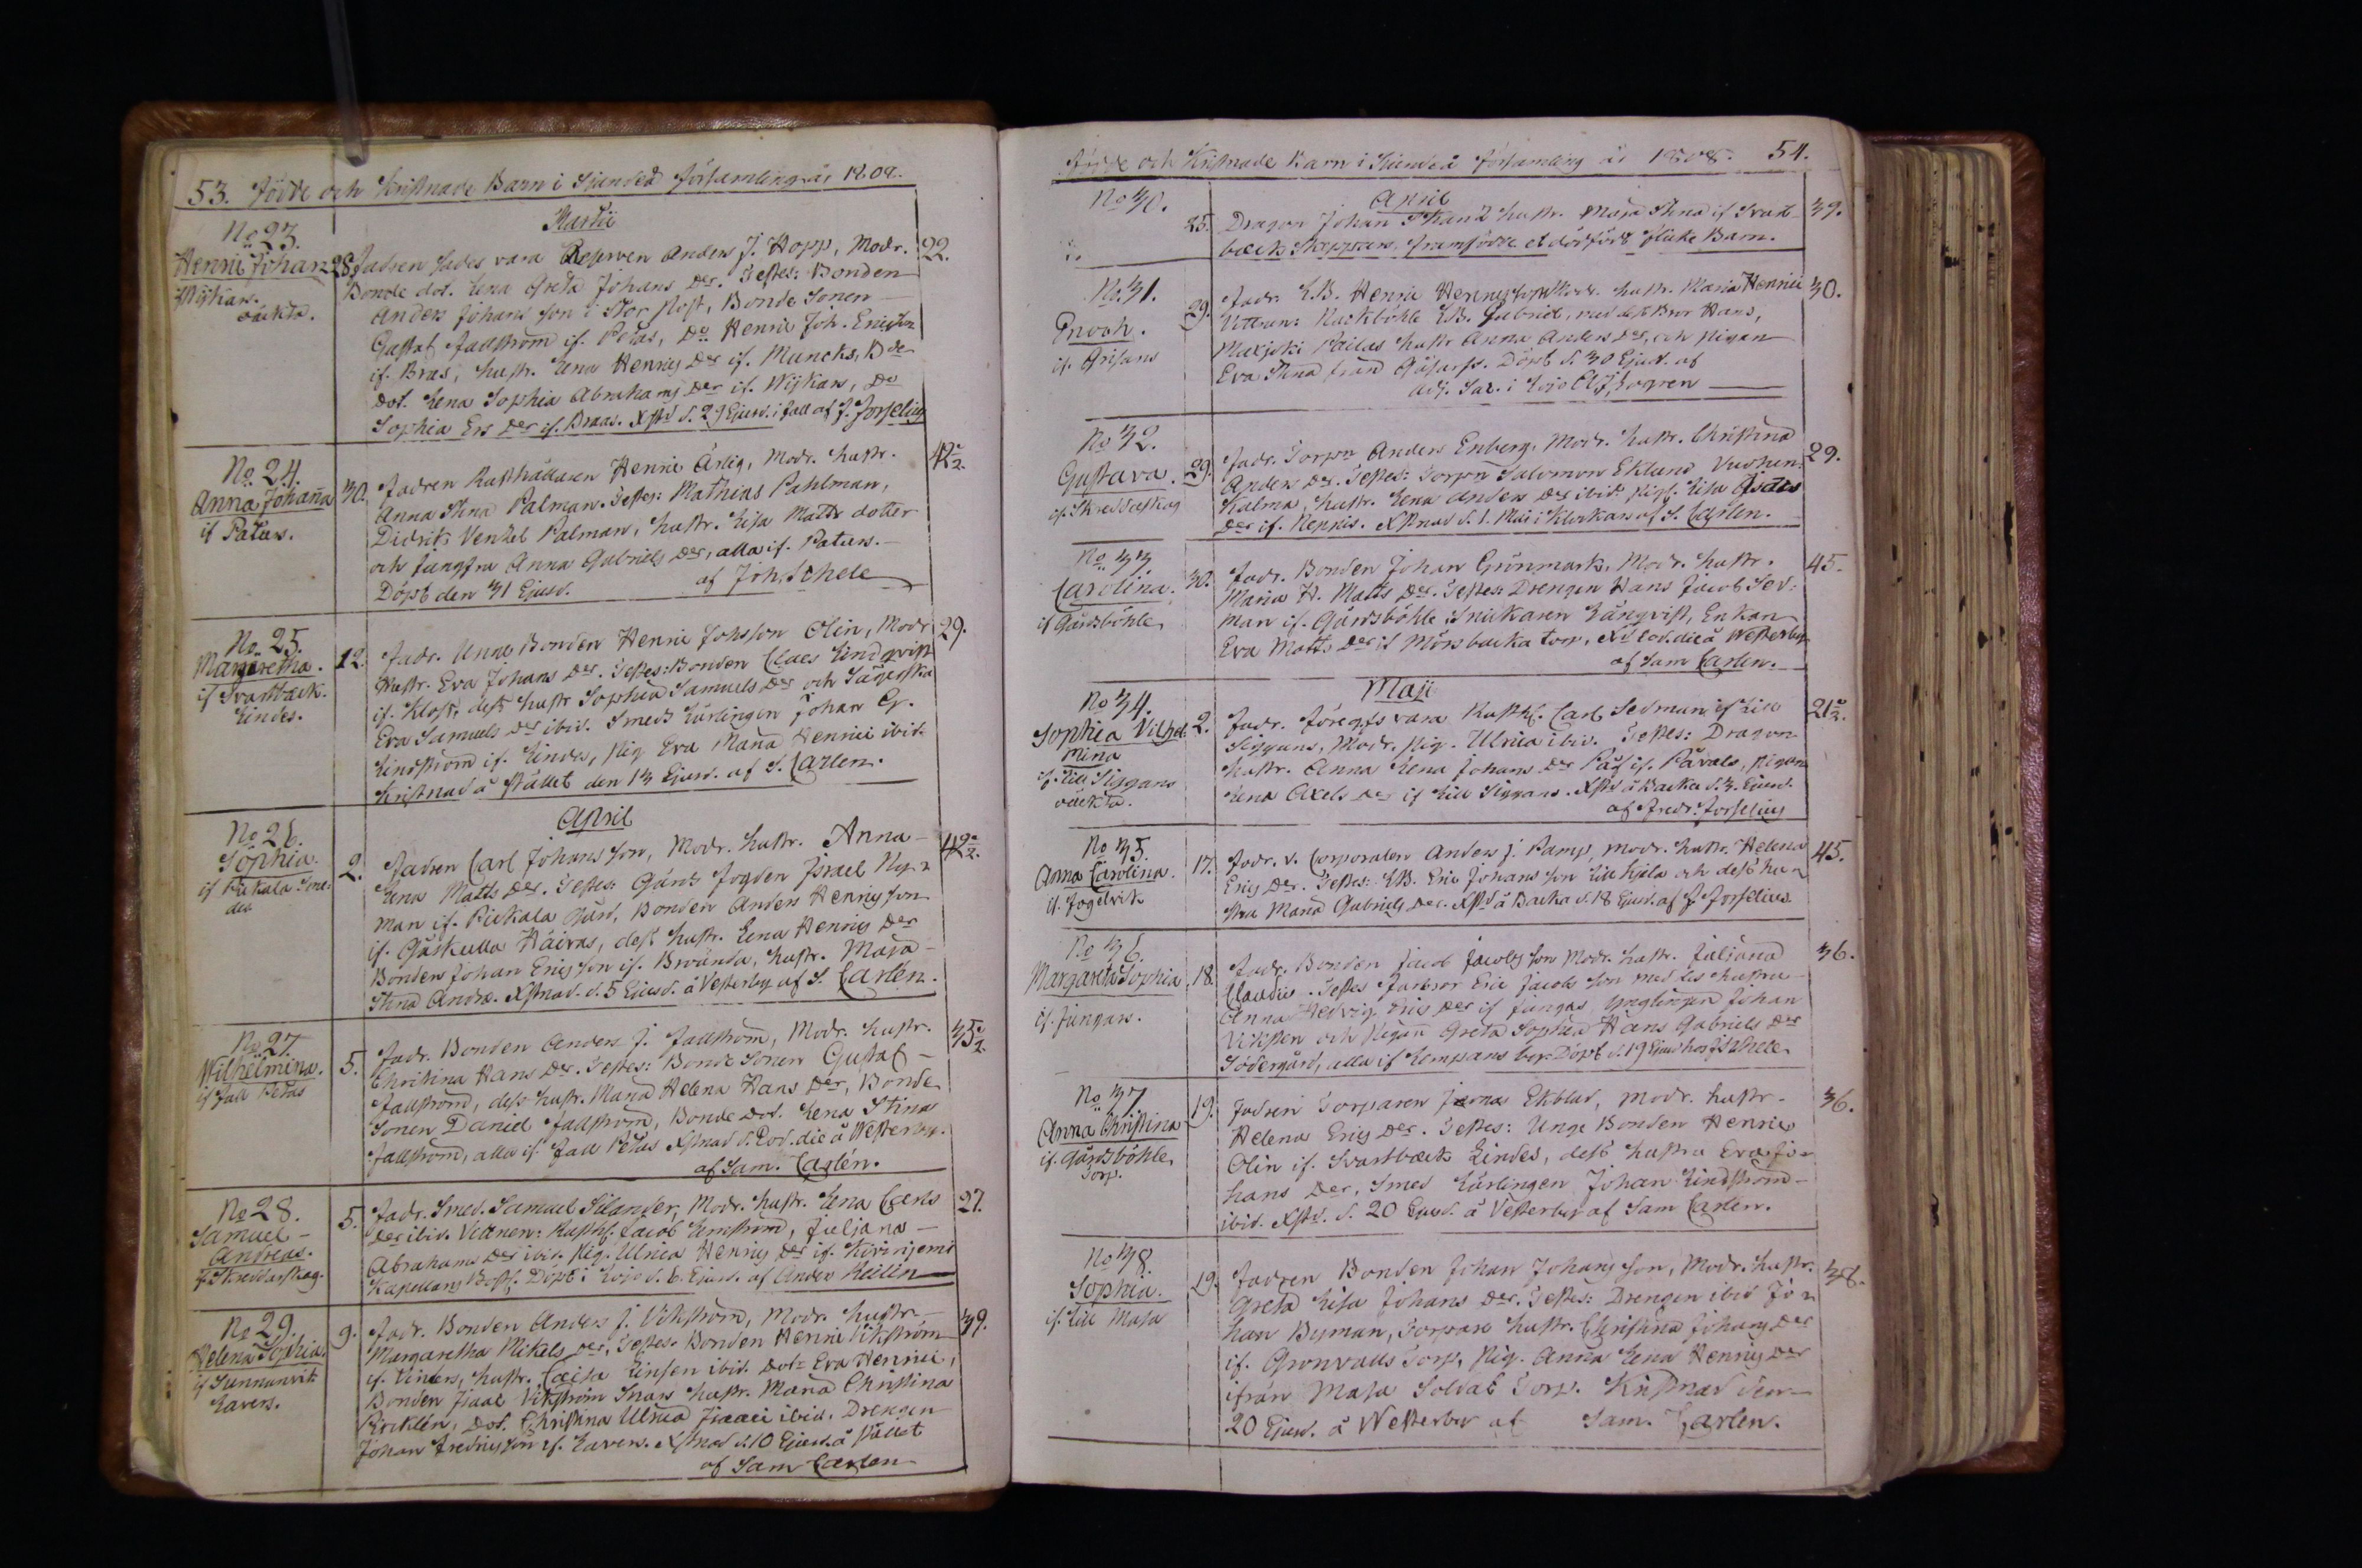 53. Födde och Kristnade Barn i Sjundeå församling år 1808.
Martii
No 23.
Henric Johan
Wijkars.
oäckta.
28. Fadren sades vara Reserven Anders J. Hopp, Modr.
Bonde dot. Lena Greta Johans Der. Testes: Bonden
Anders Johans son i Stor, Bonde Sonen
Gustaf Fallström if. Petas, Do Henric Joh. Ericsson
if. Bras, hustr. Lena Henrics Der if. Muncks, Bde
dot. Lena Sophia Abrahams Der if. Wijkars, Do
Sophia Ers Der if. Braas. Xstd d. 29 Ejusd. i fall af J. Forselius
22.
No 24.
Anna Johanna
if Patars.
30. Fadren Rusthållaren Henric Ärlig, Modr. hustr.
Anna Stina Palman. Testes: Mathias Pahlman,
Didrik Venhel Palman, hustr. Lisa Matts dotter
och Jungfru Anna Gabriels Der, alla if. Patars.
Döpt den 31 Ejusd. af Joh. Schele
42
No 25.
Margaretha.
if Svartbäck.
Lindes.
12. Fadr. Unga Bonden Henric Johsson Olin, Modr
Hustr. Eva Johans Der. Testes: Bonden Claes Lindqvist
if. Klost, dess hustr Sophia Samuels Der och
Eva Samuels Der ibid. Smeds Lärlingen Johan Gr.
Lindström if. Lindes, Pig Eva Maria Henrici ibid.
Kristnad å stället den 13 Ejusd. af S. Carlen.
29.
April
No 26.
Sophia.
if Pickala
2. Fadren Carl Johans son, Modr. hustr. Anna
Lena Matts Der. Testes: Gårds Fogden Israel Ny-
man if. Pickala Gård, Bonden Anders Henrics son
if. Gåskulla Häivas, dess hustr. Lena Henrics Der
Bonden Johan Erics son if. Brrända, hustr. Maja
Stina Andr. Xstnad. d. 5 Ejusd. å Vesterby af S. Carlen.
42
No 27.
Wilhelmina.
if Fall Petas
5. Fadr. Bonden Anders J. Fallström, Modr. hustr.
Christina Hans Der. Testes: Bonde Sonen Gustaf
Fallström, dess hustr. Maria Helena Hans Der, Bonde
Sonen Daniel Fallström, Bonde Dot. Lena Stina
Fallström, alla if. Fall Petas Xstnad d. Eod. die å Westerby.
af Sam. Carlén.
35
No 28.
Samuel
Andreas.
if Skreddarskog.
5. Fadr. Smed. Samuel Silander, Modr. hustr. Lena Carls
Der ibid. Vittnen: Rusth. Jacob Ternström, Juliana
Abrahams Der ibid. Pig. Ulrica Henrics Der if. Kivirijemi
Kapellans Bost. Döpt i Lojo d. 6. Ejusd. af Anders Heilin
27.
No 29.
Helena Sophia.
if Sunnanvik
Lavers.
9. Fadr. Bonden Anders J. Vikström, Modr. hustr.
Margaretha Mikels Der. Testes. Bonden Henric Vikström
if. Vinders, hustr. Caisa Linsen ibid. Dot. Eva Henrici,
Bonden Isaac Vikström Snars hustr. Maria Christina
Bircklén, Dot. Christina Ulrica Isaaci ibid. Drengen
Johan Fredrics son if. Lavers. Xstnad d. 10 Ejusd. å stället
af Sam Carlen
39.
Födde och Kristnade Barn i Sjundeå församling år 1808. 54.
April
No 30.
25. Dragon Johan hustr. Maja Stina if Svart-
bäck Skeppars, framfödde et dödfödt flicke Barn.
39.
No 31.
Enoch.
if. Grisans
29. Fadr. LB. Henric Henrics son Modr. hustr. Maria Henrici
Vittnen: Kackböhle LB. Gabriel, med dess Bror Hans,
Maxjoki Pailas hustr Anna Anders Der, och Pigan
Eva Stina från Gåsarss. Döpt d. 30 Ejusd. af
Adj. Sac. i Lojo
30.
No 32.
Gustava.
if. Skreddarskog
29. Fadr. Torpn Anders Enberg, Modr. hustr. Christina
Anders Der. Testes: Torpn Salomon Eklund
Kalma, hustr. Lena Anders Der ibid. Pig. Lisa
Der if. Heppis. Xstnad d. 1. Maii i Klockars af S. Carlen.
29.
No 33.
Carolina.
if Gårdsböhle
30. Fadr. Bonden Johan Grönmark, Modr. hustr.
Maria H. Matts Der. Testes: Drengen Hans Jacob Sed-
man if. Gårdsböhle Snickaren Längqvist, Enkan
Eva Matts Der if Mörsbacka torp, Xd Eod. die å Westerby
af Sam Carlen.
45.
Maji
No 34.
Sophia Vilhel-
mina
if. Lill Siggans
oäckta.
2. Fadr. föregifs vara Rusth. Carl Sedman if Lill
Siggans, Modr. Pig. Ulrica ibid. Testes: Dragon
hustr. Anna Lena Johans Der Påf if. Påvals, Pigan
Lena Axels Der if Lill Siggans. Xstd å Backa d. 3. Ejusd.
af Fredr. Forselius
21
No 35.
Anna Carolina.
if. Fogelvik
17. Fadr. v. Corporalen Anders J. Pamp, Modr. hustr. Helena
Erics Der. Testes: LB. Eric Johans son Lill Kyila och dess hu-
stru Maria Gabriels Der. Xstd å Backa d. 18 Ejusd. af F. Forselius
45.
No 36.
Margareta Sophia
if. Jungars.
18. Fadr. Bonden Jacob Jacobs son Modr. hustr. Juliana
Claudii. Testes Farbror Eric Jacobs son med dess hustru
Anna Hedvig Erics Der if Jungas, Ynglingen Johan
Vikstén och Pigan Greta Sophia Hans Gabriels Der
Södergård, alla if Kempans by. Döpt d. 19 Ejusd hos J. Schele
36.
No 37.
Anna Christina
if. Gårdsböhle
Torp.
19. Fadren Torparen Jonas Ekblad, Modr. hustr.
Helena Erics Der. Testes: Unge Bonden Henric
Olin if. Svartbäck Lindes, dess hustru Eva Jo-
hans Der, Smed Lärlingen Johan Lindström
ibid. Xstd. d. 20 Ejusd. å Vesterby af Sam Carlen.
36.
No 38.
Sophia.
if. Lill Masa
19. Fadren Bonden Johan Johans son, Modr. hustr.
Greta Lisa Johans Der. Testes: Drengen ibid Jo-
han Byman, Torpare hustr. Christina Johans Der
if. Gronvalls Torp, Pig. Anna Lena Henrics Der
ifrån Masa Soldat Torp. Kristnad den
20 Ejusd. å Westerby af Sam. Carlen.
38.